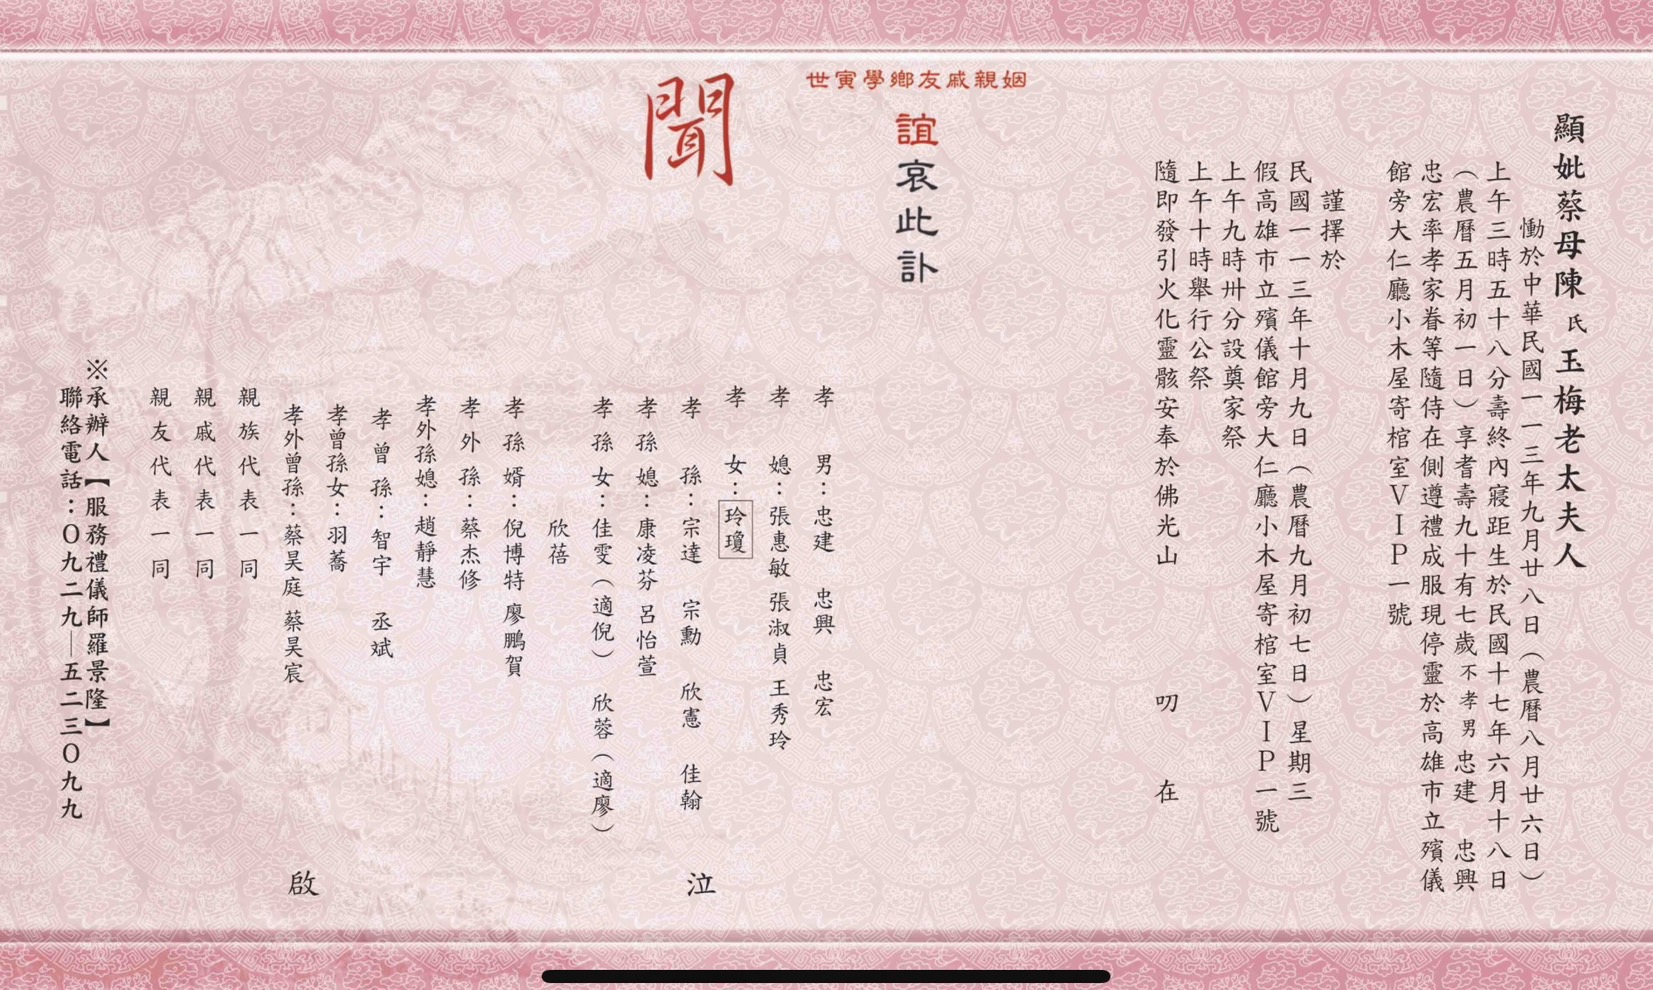 顯妣蔡母陳氏玉梅老太夫人
慟於中華民國一一三年九月廿八日（農曆八月廿六日）
上午三時五十八分壽終內寢距生於民國十七年六月十八日
（農曆五月初一日）享耆壽九十有七歲不孝男忠建　忠興
忠宏率孝家眷等隨侍在側遵禮成服現停靈於高雄市立殯儀
館旁大仁廳小木屋寄棺室ＶＩＰ一號
謹擇於
民國一一三年十月九日（農曆九月初七日）星期三
假高雄市立殯儀館旁大仁廳小木屋寄棺室ＶＩＰ一號
上午九時卅分設奠家祭
上午十時舉行公祭
隨即發引火化靈骸安奉於佛光山　叨　在
世寅學鄉友戚親姻
誼哀此訃
聞
孝　男：忠建　忠興　忠宏
孝　媳：張惠敏　張淑貞　王秀玲
孝　女：玲瓊
孝　孫：宗達　宗勳　欣憲　佳翰
孝孫媳：康凌芬　呂怡萱
孝孫女：佳雯（適倪）　欣蓉（適廖）
欣蓓
孝孫婿：倪博特　廖鵬賀
孝外孫：蔡杰修
孝外孫媳：趙靜慧
孝曾孫：智宇　丞斌
孝曾孫女：羽蕎
孝外曾孫：蔡昊庭　蔡昊宸
泣
親族代表一同
親戚代表一同
親友代表一同
啟
※承辦人【服務禮儀師羅景隆】
聯絡電話：０九二九｜五二三０九九